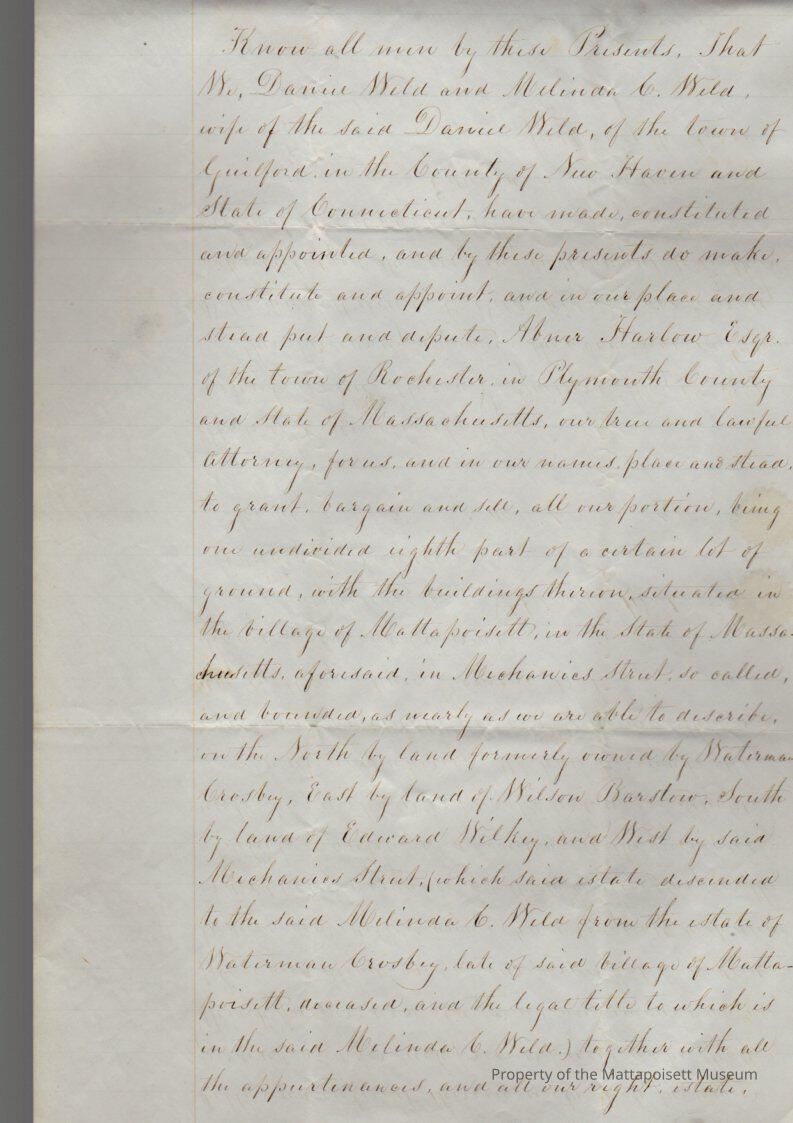 Know all men by these Presents, That
We, Daniel Weld and Melinda C. Weld,
wife of the said Daniel Weld, of the town of
Guilford in the County of New Haven and
State of Connecticut, have made, constituted
and appointed, and by these presents do make,
constitute and appoint, and in our place and
stead put and depute, Abner Harlow Esqr.
of the town of Rochester, in Plymouth County
and State of Massachusetts, our true and lawful
Attorney, for us, and in our names, place and stead,
to grant, bargain and sell, all our portion, being
one undivided eighth part of a certain lot of
ground, with the buildings thereon, situated in
the village of Mattapoisett, in the State of Massa-
chusetts, aforesaid, in Mechanics Street, so called,
and bounded, as nearly as we are able to describe,
on the North by land formerly owned by Waterman
Crosbey, East by land of Wilson Barstow, South
by land of Edward Wilkey, and West by said
Mechanics Street, (which said estate descended
to the said Melinda C. Weld from the estate of
Waterman Crosbey, late of said Village of Matta-
poisett, deceased, and the legal title to which is
in the said Melinda C. Weld.) together with all
Property of the Mattapoisett Museum
the appurtenances, and all our right, estate,